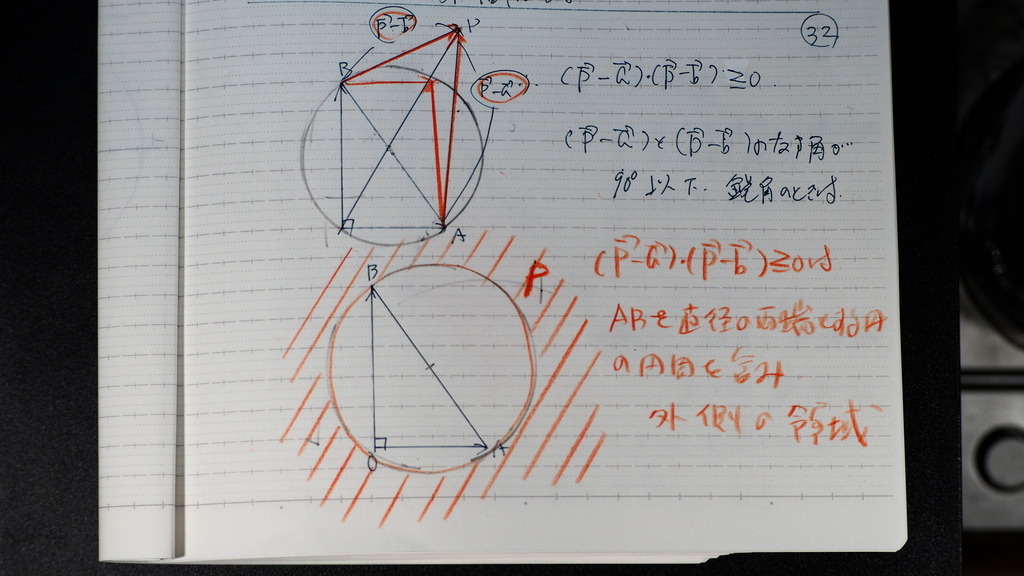 32
p⃗-b⃗
P
B
p⃗-a⃗
(p⃗-a⃗)・(p⃗-b⃗)≧0
(p⃗-a⃗)と(p⃗-b⃗)のなす角が
90°以下. 鋭角のときは.
A
(p⃗-a⃗)・(p⃗-b⃗)≧0は
B
P
ABを直径の両端とする円
の円周を含み
外側の領域
O
A